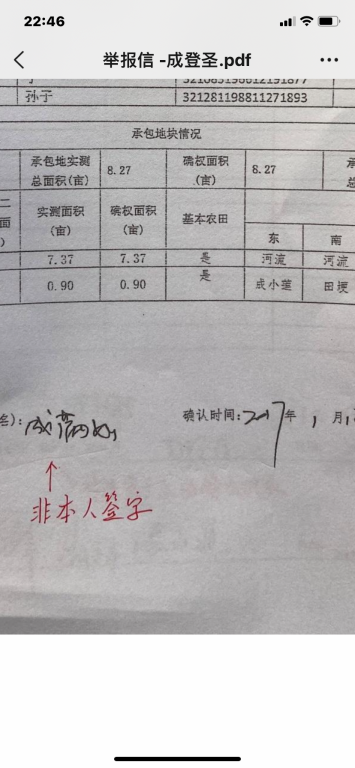 22:46
举报信 -成登圣.pdf
孙子 321281198811271893
承包地块情况
承包地实测总面积(亩) 8.27 确权面积(亩) 8.27
实测面积(亩) 确权面积(亩) 基本农田
东 南
7.37 7.37 是 河流 河流
0.90 0.90 是 成小莲 田埂
确认时间:2017年1月
非本人签字